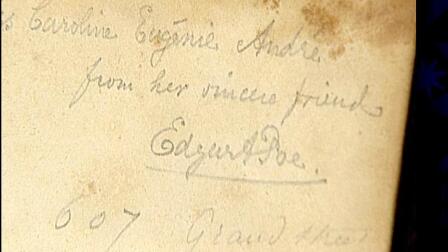 s Caroline Eugénie André
from her sincere friend
Edgar A Poe.
607 Grand street